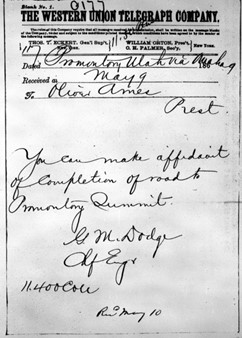 Blank No. 1.
0177
THE WESTERN UNION TELEGRAPH COMPANY.
THOS. T. ECKERT, Gen'l Sup't,
WILLIAM ORTON, Pres't,
O. H. PALMER, Sec'y,
NEW YORK.
Dated Promontory Utah Via Omaha 9
186
Received at May 9
To Oliver Ames
Prest.
You can make affidavit
of completion of road to
Promontory Summit.
G M. Dodge
Chf Engr
11.400 Coll
Recd May 10